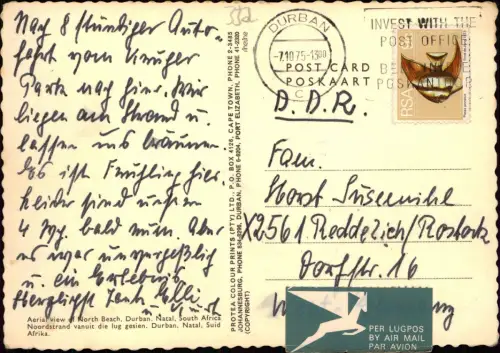 572
Nach 8 stündiger Auto-
fahrt vom Krüger
Park nach hier. Wir
liegen am Strand u.
lassen uns bräunen.
Es ist Frühling hier.
Leider sind unsere
4 Wg. bald um. Aber
es war unvergeßlich
u. ein Erlebnis
Herzlichst
u.
Aerial view of North Beach, Durban, Natal, South Africa
Noordstrand vanuit die lug gesien, Durban, Natal, Suid
Afrika.
PROTEA COLOUR PRINTS (PTY) LTD., P.O. BOX 4126, CAPE TOWN, PHONE 2-3485
JOHANNESBURG, PHONE DURBAN, PHONE PORT ELIZABETH, PHONE
(COPYRIGHT)
DURBAN
-7.10.75-1300
C
INVEST WITH THE
POST OFFICE
POST CARD
POSKAART
RSA
D.D.R.
Fam.
Horst Susemihl
12561 Reddelich/Rostock
Dorfstr. 16
PER LUGPOS
BY AIR MAIL
PAR AVION